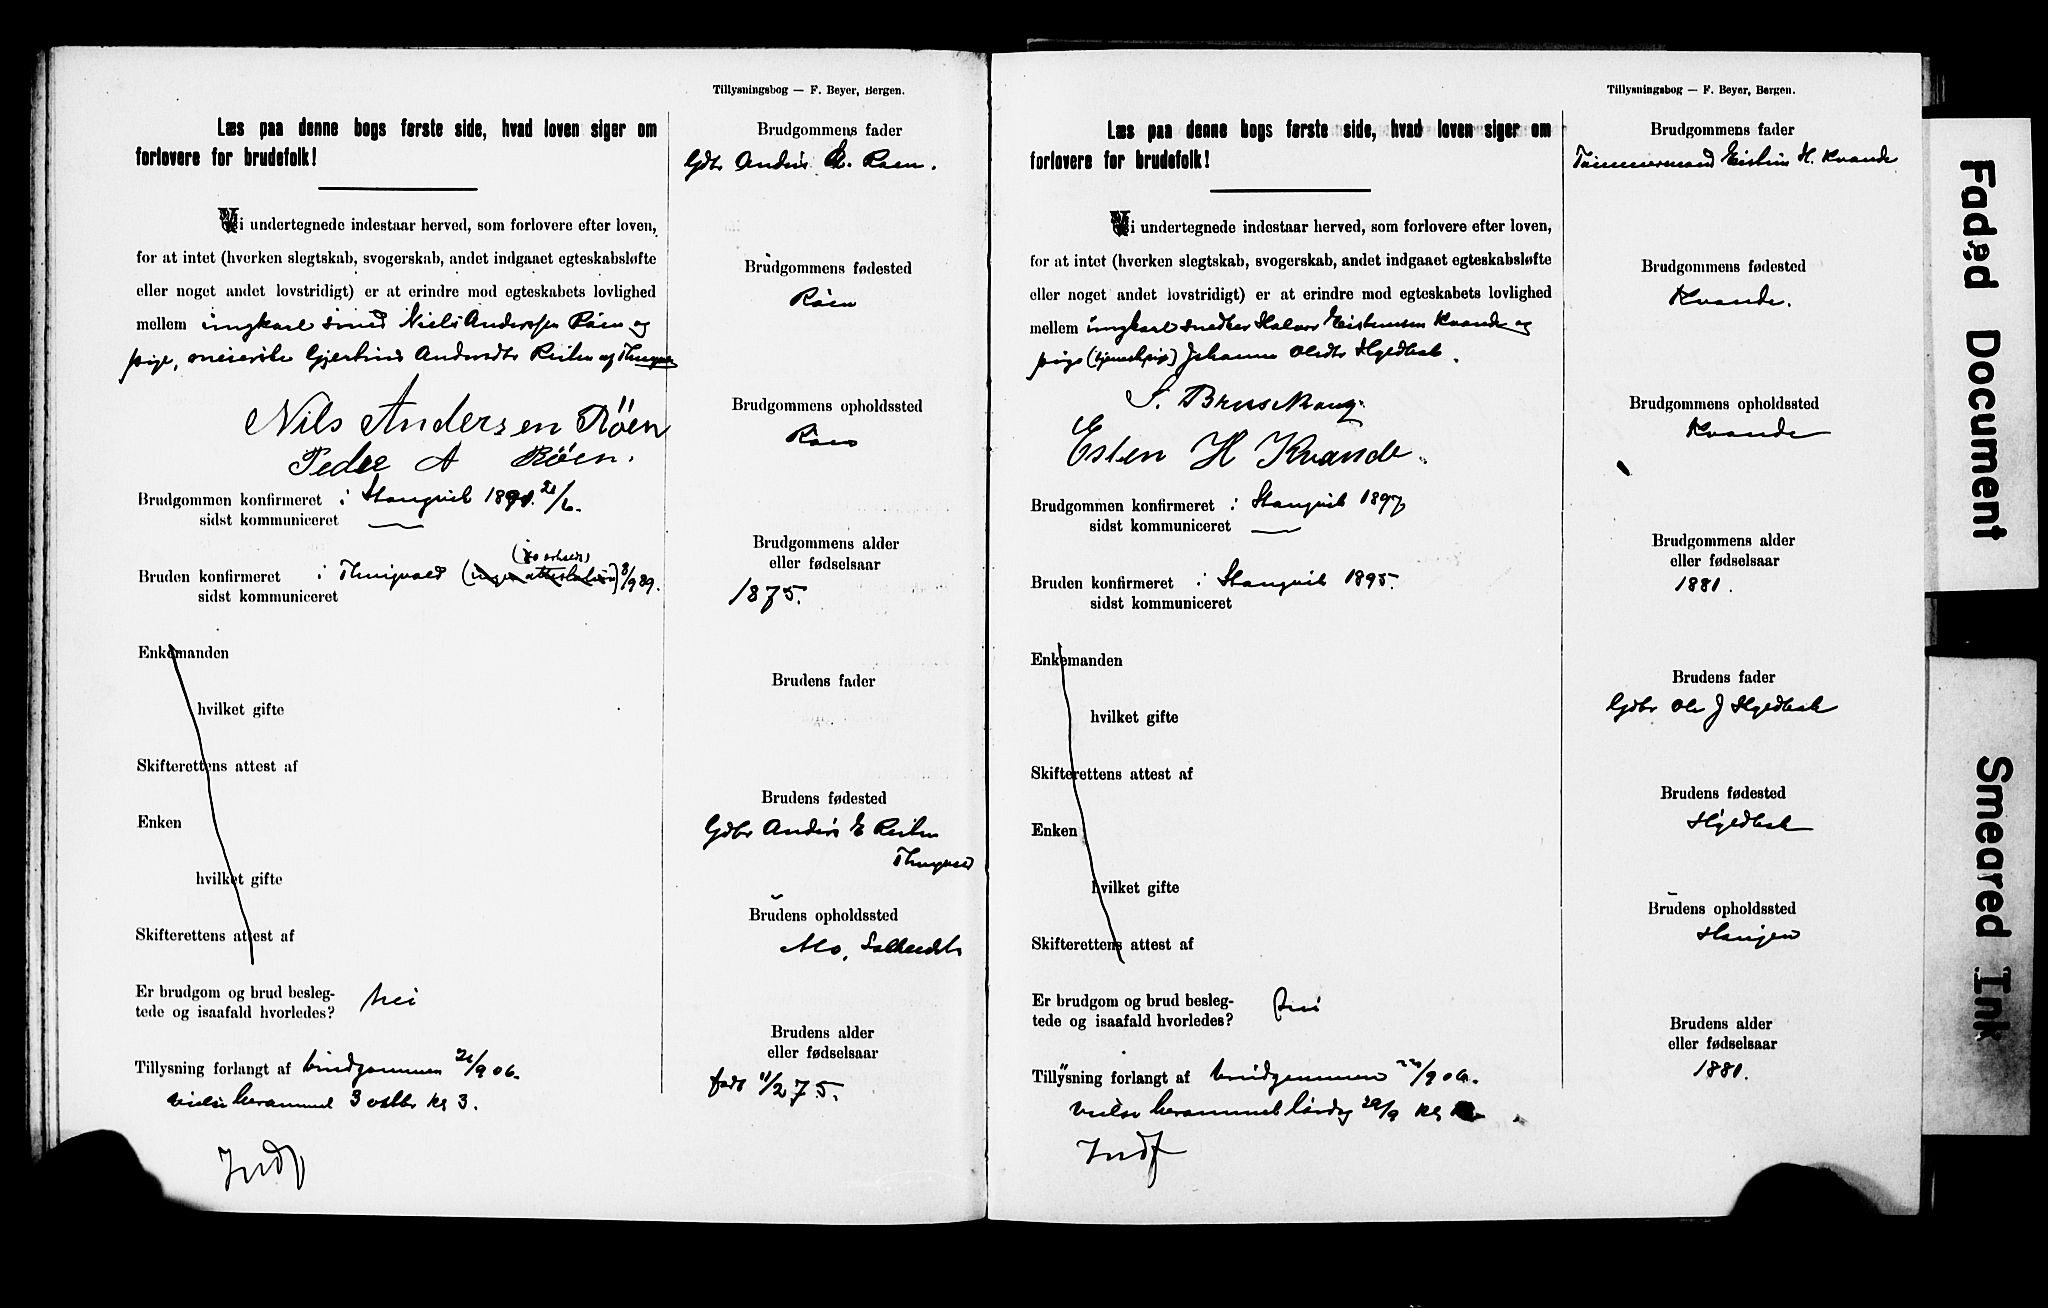 Tillysningsbog — F. Beyer, Bergen.
Læs paa denne bogs første side, hvad loven siger om
forlovere for brudefolk!
Vi undertegnede indestaar herved, som forlovere efter loven,
for at intet (hverken slegtskab, svogerskab, andet indgaaet egteskabsløfte
eller noget andet lovstridigt) er at erindre mod egteskabets lovlighed
mellem ungkarl smed Niels Anderssen Røen og
pige, meierske Gjertine Andersdtr Reiten af Thingvold
Nils Andersen Røen
Peder A Røen.
Brudgommen konfirmeret i Stangvik 1890. 21/6.
sidst kommuniceret
Bruden konfirmeret i Thingvold 8/9 89.
sidst kommuniceret
Enkemanden
hvilket gifte
Skifterettens attest af
Enken
hvilket gifte
Skifterettens attest af
Er brudgom og brud besleg-
tede og isaafald hvorledes? Nei
Tillysning forlangt af brudgommen 21/9 06.
vielse berammet 3 oktbr kl 3.
Indf
Brudgommens fader
Gdbr Anders Røen.
Brudgommens fødested
Røen
Brudgommens opholdssted
Røen
Brudgommens alder
eller fødselsaar
1875.
Brudens fader
Brudens fødested
Gdbr Anders E Reiten
Thingvold
Brudens opholdssted
Mo,
Brudens alder
eller fødselsaar
født 11/2 75.
Tillysningsbog — F. Beyer, Bergen.
Læs paa denne bogs første side, hvad loven siger om
forlovere for brudefolk!
Vi undertegnede indestaar herved, som forlovere efter loven,
for at intet (hverken slegtskab, svogerskab, andet indgaaet egteskabsløfte
eller noget andet lovstridigt) er at erindre mod egteskabets lovlighed
mellem ungkarl snedker Halvor Eistensen Kvande og
pige (tjenestepige) Johanne Olsdtr Hyldbak.
S. Bruset
Esten H Kvande.
Brudgommen konfirmeret i Stangvik 1897
sidst kommuniceret
Bruden konfirmeret i Stangvik 1895.
sidst kommuniceret
Enkemanden
hvilket gifte
Skifterettens attest af
Enken
hvilket gifte
Skifterettens attest af
Er brudgom og brud besleg-
tede og isaafald hvorledes? Nei
Tillysning forlangt af brudgommen 22/9 06.
vielse berammet lørdag 29/9 kl
Indf
Brudgommens fader
Tømmermand Eisten H. Kvande
Brudgommens fødested
Kvande.
Brudgommens opholdssted
Kvande
Brudgommens alder
eller fødselsaar
1881.
Brudens fader
Gdbr Ole J Hyldbak
Brudens fødested
Hyldbak
Brudens opholdssted
Haugen
Brudens alder
eller fødselsaar
1880.
Faded Document
Smeared Ink